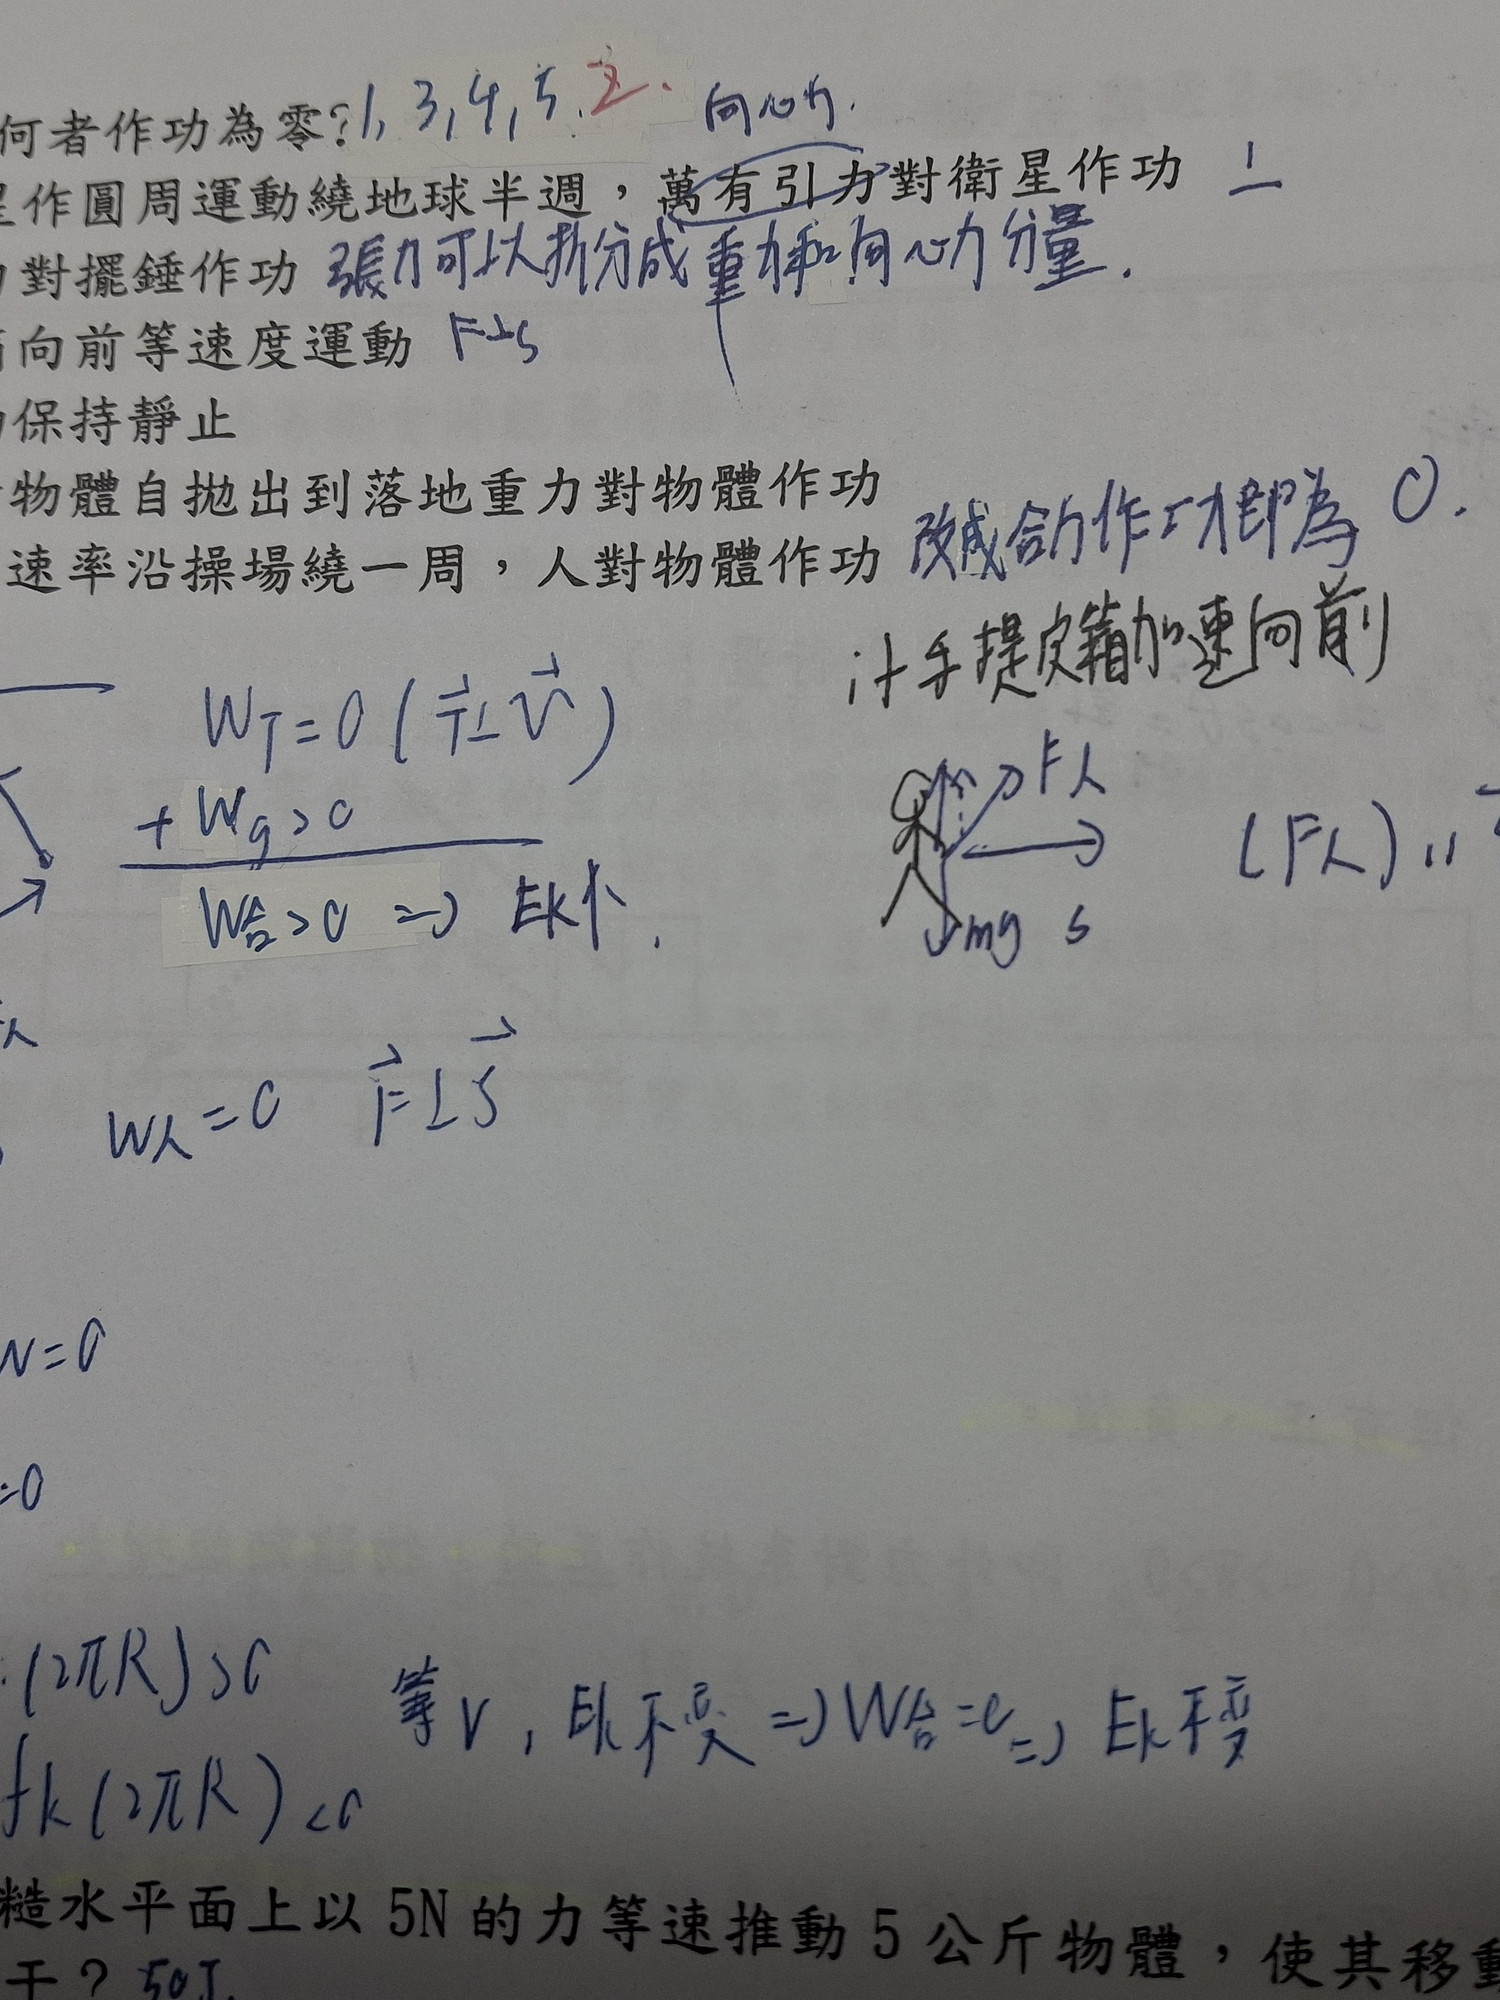 何者作功為零?1, 3, 4, 5. 2.
向心力.
作圓周運動繞地球半週，萬有引力對衛星作功 ⊥
對擺錘作功 張力可以拆分成重力和向心力分量.
向前等速度運動 F⊥S
保持靜止
物體自拋出到落地重力對物體作功
速率沿操場繞一周，人對物體作功 改成合力作功即為 0.
計手提皮箱加速向前
W_T=0 (T⃗⊥V⃗)
+ W_g>0
W合>0 => Ek↑.
F人
(F人)"
mg S
W人=0 F⃗⊥S⃗
W=0
=0
(2πR)>0
fk(2πR)<0
等V, Ek不變 => W合=0 => Ek不變
糙水平面上以 5N 的力等速推動 5 公斤物體，使其移動
干？50J.